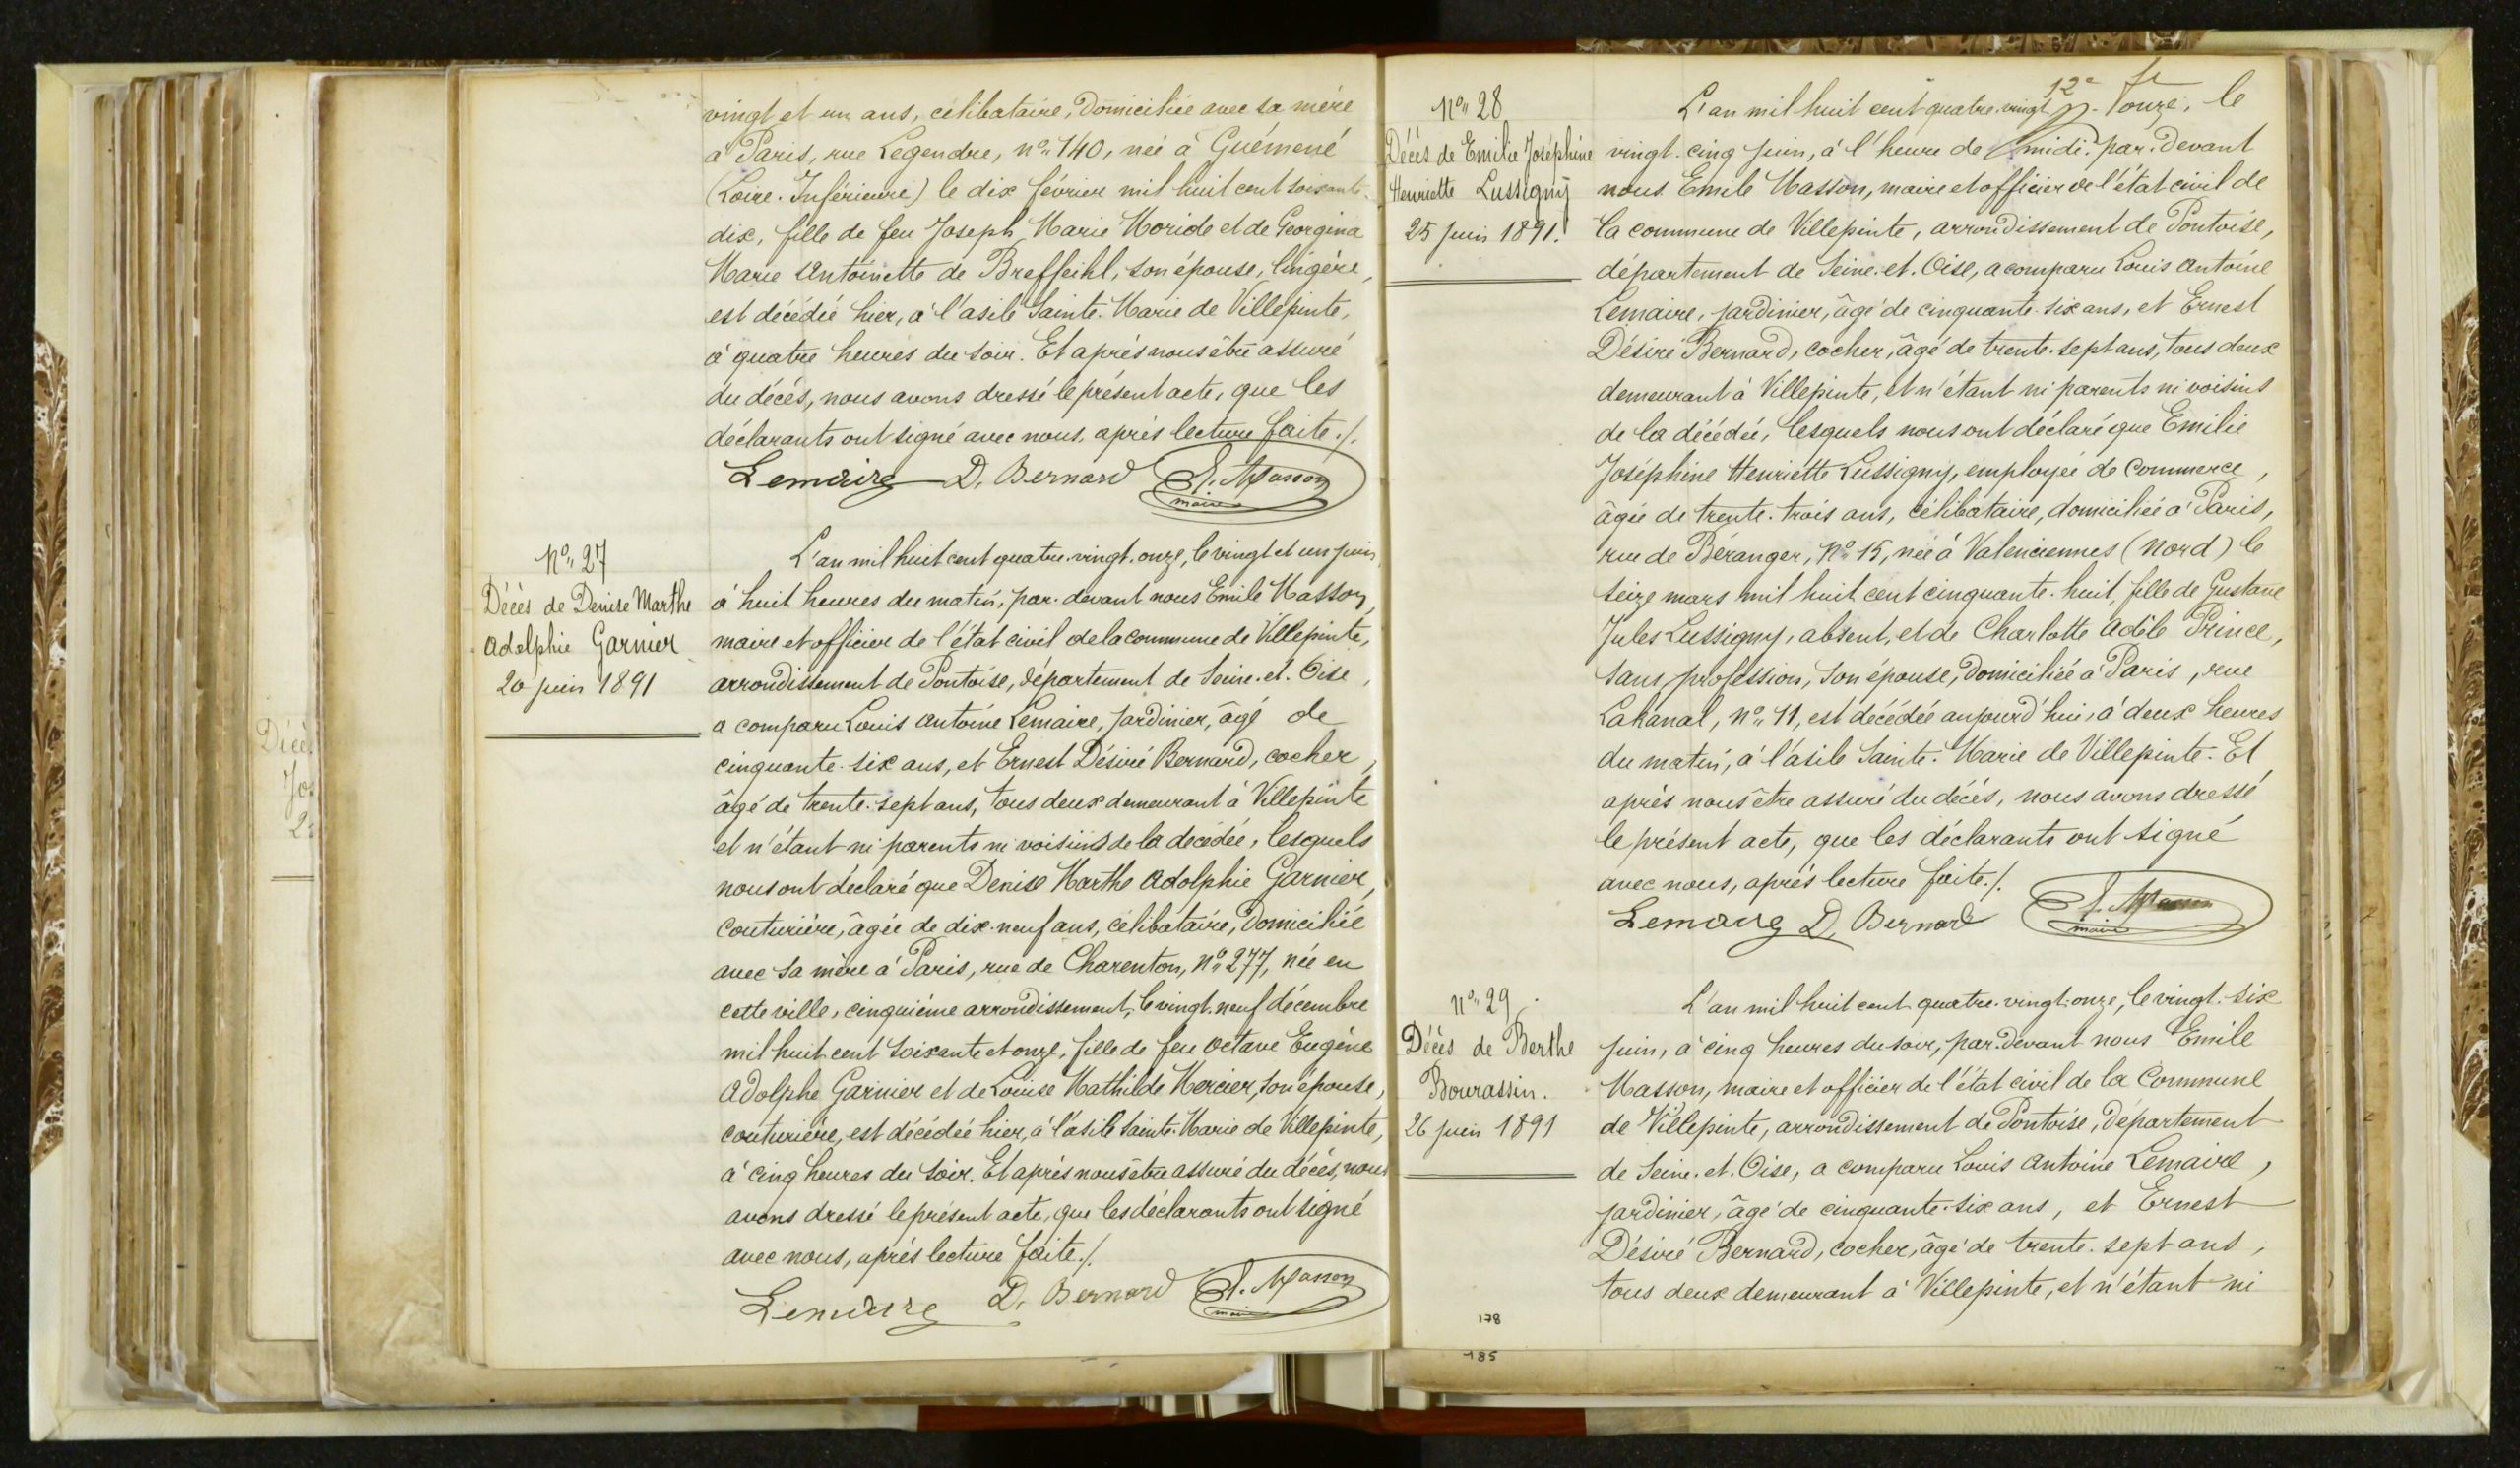 vingt et un ans, célibataire, domiciliée avec sa mère
à Paris, rue Legendre, n° 140, née à Guémené
(Loire-Inférieure) le dix février mil huit cent soixante-
dix, fille de feu Joseph Marie Moride et de Georgina
Marie Antoinette de Breffeihl, son épouse, lingère,
est décédée hier, à l'asile Sainte-Marie de Villepinte,
à quatre heures du soir. Et après nous être assuré
du décès, nous avons dressé le présent acte, que les
déclarants ont signé avec nous, après lecture faite./.
Lemaire D. Bernard E. Masson
maire
N° 27
Décès de Denise Marthe
Adolphie Garnier
20 juin 1891
L'an mil huit cent quatre-vingt-onze, le vingt et un juin,
à huit heures du matin, par-devant nous Emile Masson,
maire et officier de l'état civil de la commune de Villepinte,
arrondissement de Pontoise, département de Seine-et-Oise,
a comparu Louis Antoine Lemaire, jardinier, âgé de
cinquante-six ans, et Ernest Désiré Bernard, cocher,
âgé de trente-sept ans, tous deux demeurant à Villepinte
et n'étant ni parents ni voisins de la décédée, lesquels
nous ont déclaré que Denise Marthe Adolphie Garnier,
couturière, âgée de dix-neuf ans, célibataire, domiciliée
avec sa mère à Paris, rue de Charenton, n° 277, née en
cette ville, cinquième arrondissement, le vingt-neuf décembre
mil huit cent soixante et onze, fille de feu Octave Eugène
Adolphe Garnier et de Louise Mathilde Mercier, son épouse,
couturière, est décédée hier, à l'asile Sainte-Marie de Villepinte,
à cinq heures du soir. Et après nous être assuré du décès, nous
avons dressé le présent acte, que les déclarants ont signé
avec nous, après lecture faite./.
Lemaire D. Bernard E. Masson
maire
N° 28
Décès de Emilie Joséphine
Henriette Lussigny
25 juin 1891.
12e
L'an mil huit cent quatre-vingt-onze, le
vingt-cinq juin, à l'heure de midi, par-devant
nous Emile Masson, maire et officier de l'état civil de
la commune de Villepinte, arrondissement de Pontoise,
département de Seine-et-Oise, a comparu Louis Antoine
Lemaire, jardinier, âgé de cinquante-six ans, et Ernest
Désiré Bernard, cocher, âgé de trente-sept ans, tous deux
demeurant à Villepinte, et n'étant ni parents ni voisins
de la décédée, lesquels nous ont déclaré que Emilie
Joséphine Henriette Lussigny, employée de commerce,
âgée de trente-trois ans, célibataire, domiciliée à Paris,
rue de Béranger, N° 15, née à Valenciennes (Nord) le
seize mars mil huit cent cinquante-huit, fille de Gustave
Jules Lussigny, absent, et de Charlotte Adèle Prince,
sans profession, son épouse, domiciliée à Paris, rue
Lakanal, n° 11, est décédée aujourd'hui, à deux heures
du matin, à l'asile Sainte-Marie de Villepinte. Et
après nous être assuré du décès, nous avons dressé
le présent acte, que les déclarants ont signé
avec nous, après lecture faite./.
Lemaire D. Bernard E. Masson
maire
N° 29
Décès de Berthe
Bourassin.
26 juin 1891
L'an mil huit cent quatre-vingt-onze, le vingt-six
juin, à cinq heures du soir, par-devant nous Emile
Masson, maire et officier de l'état civil de la Commune
de Villepinte, arrondissement de Pontoise, département
de Seine-et-Oise, a comparu Louis Antoine Lemaire,
jardinier, âgé de cinquante-six ans, et Ernest
Désiré Bernard, cocher, âgé de trente-sept ans,
tous deux demeurant à Villepinte, et n'étant ni
178
185